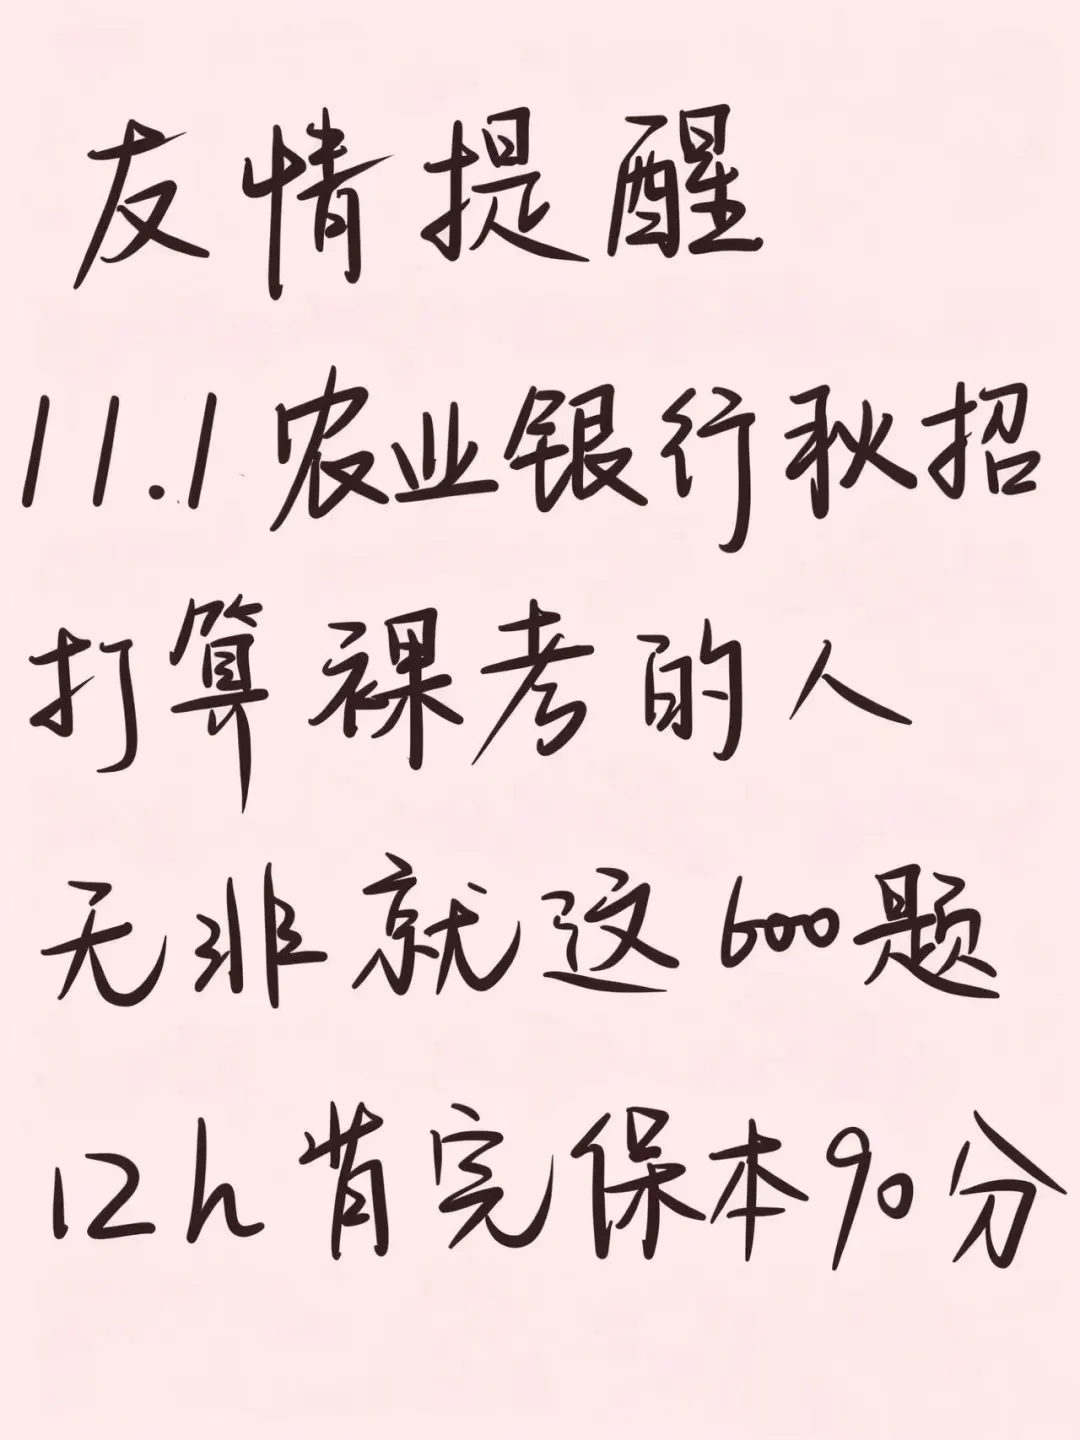 友情提醒
11.1农业银行秋招
打算裸考的人
无非就这600题
12h背完保本90分